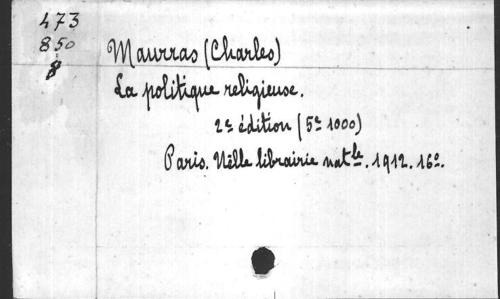 473
850
8
Maurras (Charles)
La politique religieuse.
2e édition (5e 1000)
Paris. Nelle librairie natle. 1912. 16o.